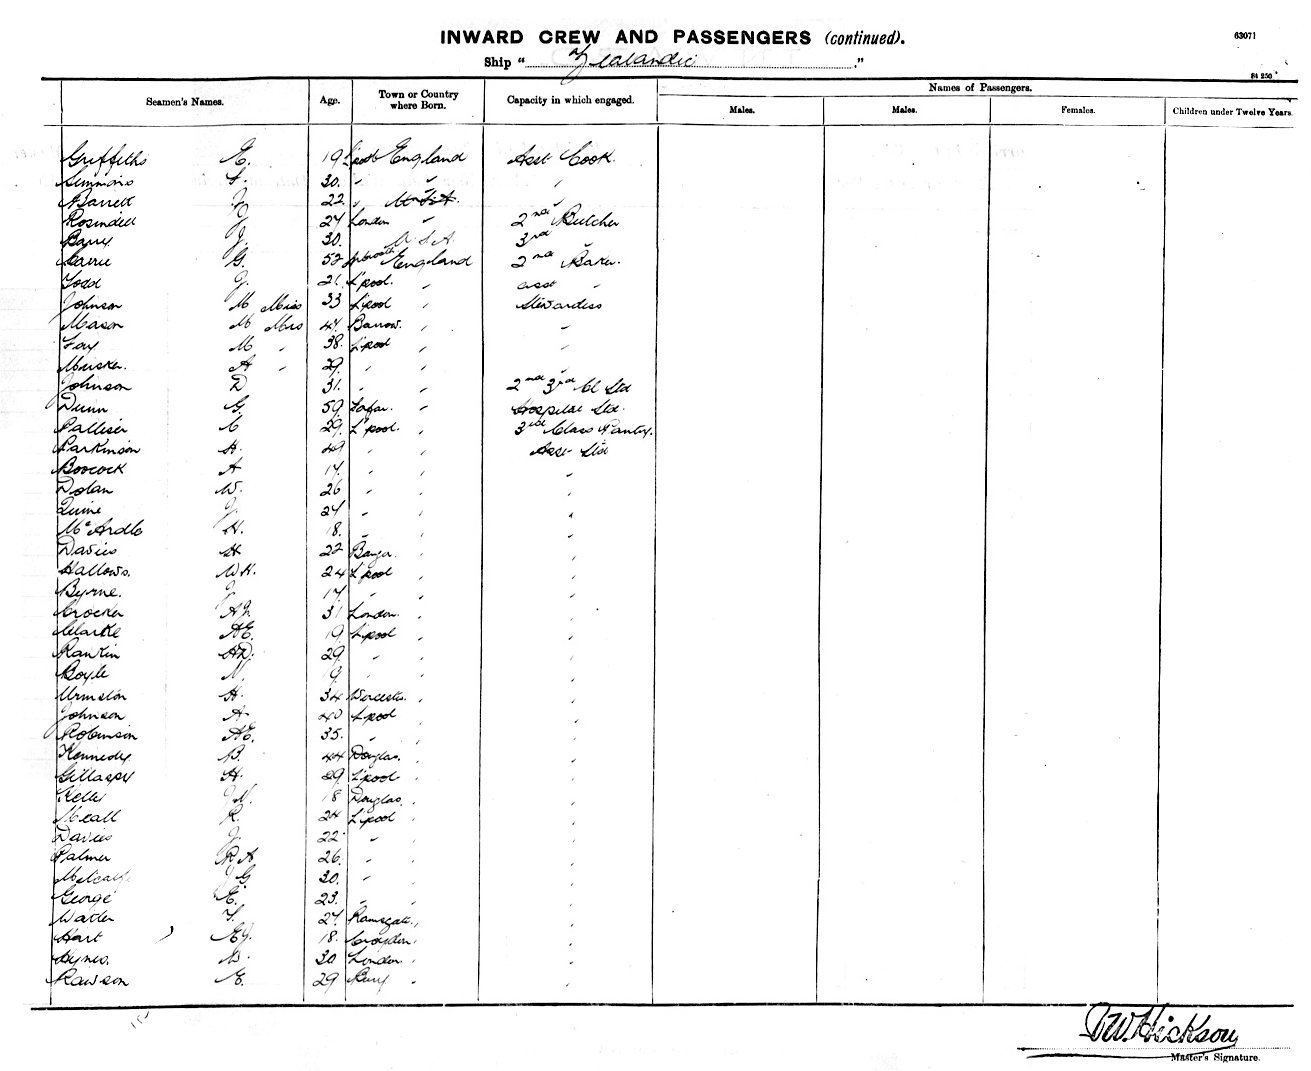 INWARD CREW AND PASSENGERS (continued).
63071
Ship " Zealandic ."
84 250
Seamen's Names. Age. Town or Country where Born. Capacity in which engaged. Names of Passengers.
Males. Males. Females. Children under Twelve Years.
Griffiths E. 19 L'pool England Asst Cook.
Simmons 30. " " "
Barrett J 22 " U.S.A. "
Rosindell 27 London " 2nd Butcher
Barry J. 30. U.S.A. 3rd "
G. 52 England 2nd Baker.
Todd J. 21 L'pool. " asst "
Johnson M Miss 33 L'pool " Stewardess
Mason M Mrs 47 Barrow. " "
Fay M " 38. L'pool " "
Musker. A " 29. " " "
Johnson D 31. " " 2nd 3rd Cl Std
Dunn G. 59. " Hospital Std.
Palliser C 29. L'pool. " 3rd Class Pantry.
Parkinson H. 49 " " Asst Std
Boocock A 17. " " "
Dolan W. 26 " " "
Quine J. 27 " " "
McArdle H. 18. " " "
Davies H 22 Bangor. " "
Hallows. W.H. 24 L'pool " "
Byrne. J. 17. " " "
Crocker A.J. 31 London. " "
Clarke A.E. 19 L'pool " "
Rankin A.D. 29. " " "
Boyle " " "
Urmston H. 34 Worcester. " "
Johnson A 40 L'pool " "
Robinson A.E. 35. " " "
Kennedy B. 44 Douglas. " "
Gillaspy H. 29 L'pool " "
Kelly 18 Douglas. " "
Meall R. 24 L'pool " "
Davies J. 22 " "
Palmer R A 26. " "
Metcalfe J G. 30. " "
George E. 23. " " "
27 Ramsgate. " "
Hart E.J. 18. Croydon. "
Hynes. 30 London. " "
Rawson E. 29 Bury " "
D W. Hickson
Master's Signature.